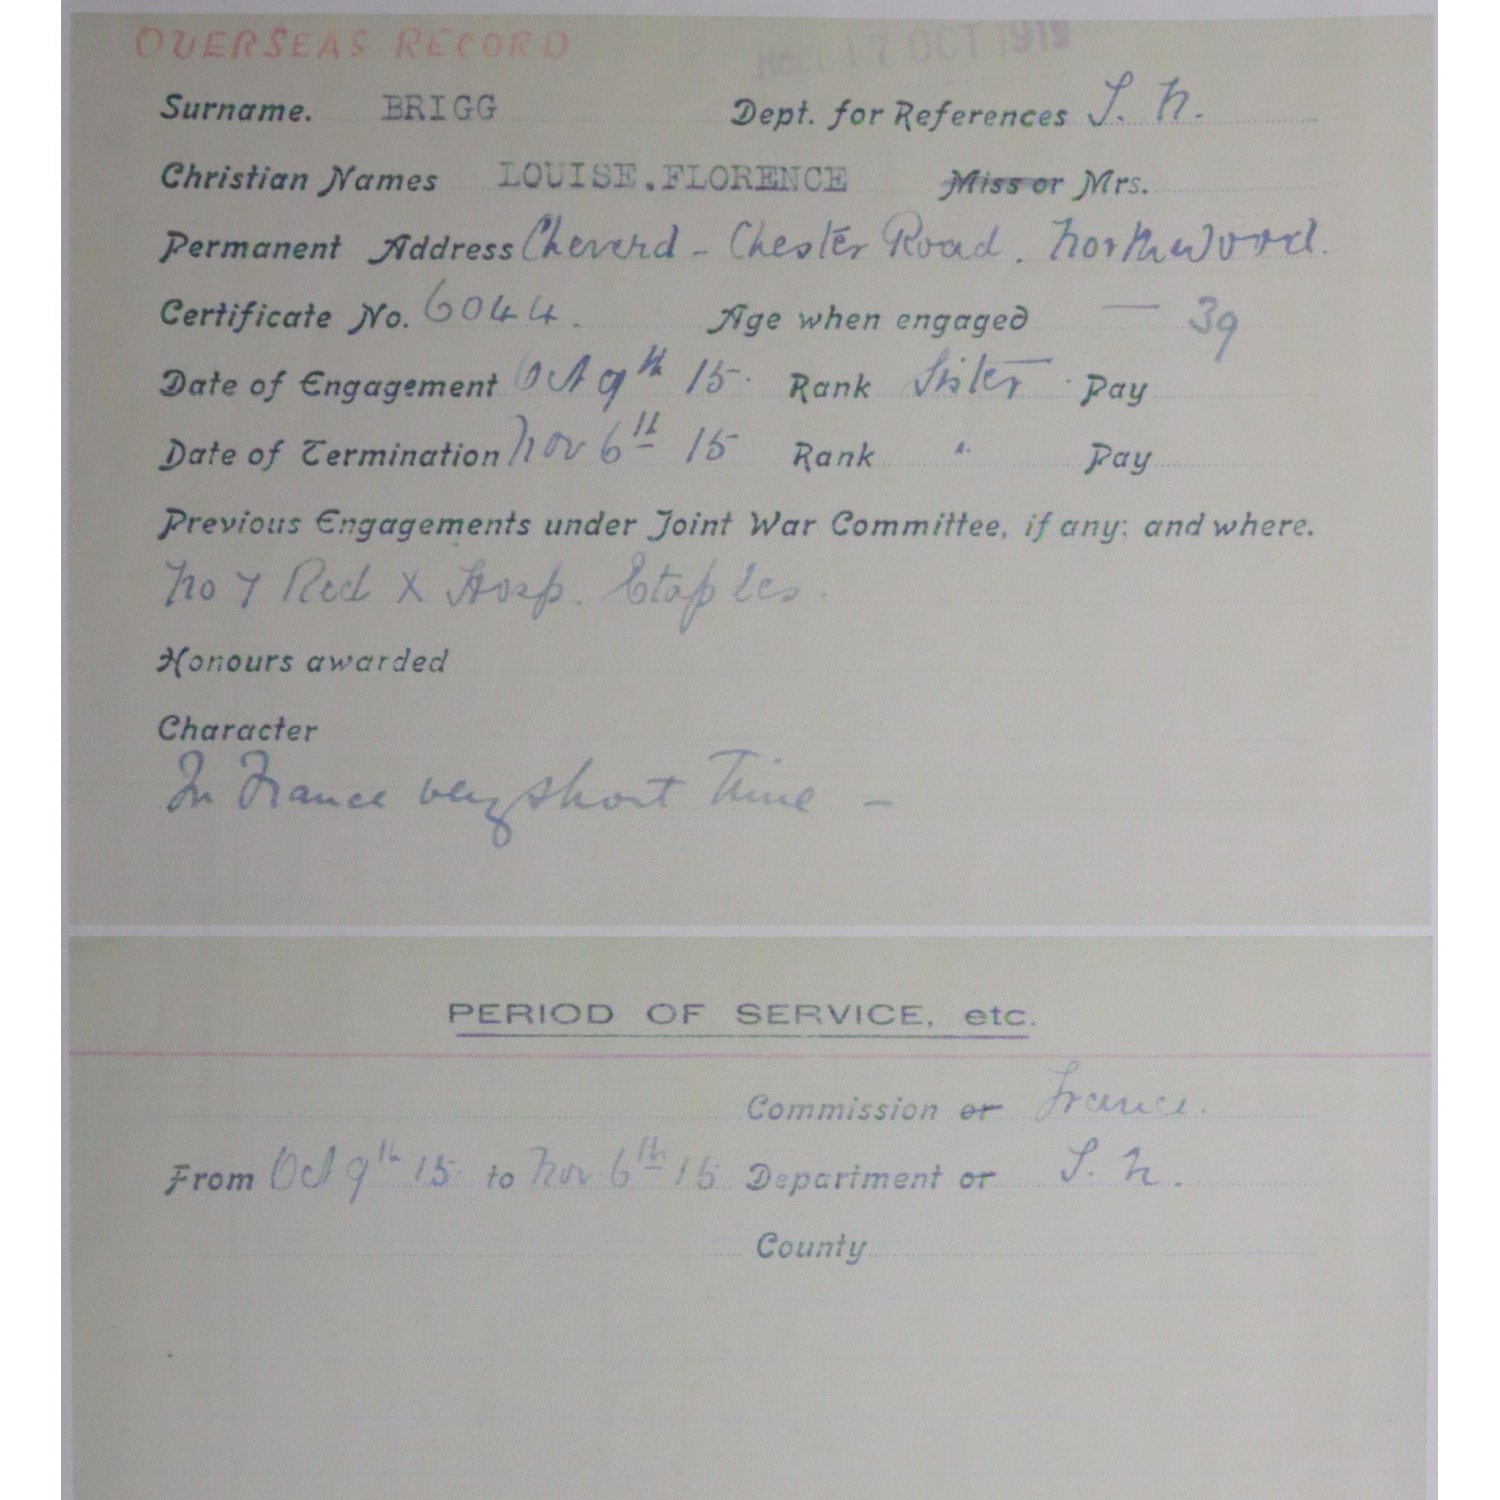 OVERSEAS RECORD
Recd 17 OCT 1919
Surname. BRIGG Dept. for References T. N.
Christian Names LOUISE.FLORENCE Miss or Mrs.
Permanent Address Cheverd - Chester Road. Northwood.
Certificate No. 6044. Age when engaged — 39
Date of Engagement Oct 9th 15. Rank Sister. Pay
Date of Termination Nov 6th 15 Rank " Pay
Previous Engagements under Joint War Committee, if any: and where.
No 7 Red X Hosp. Etaples.
Honours awarded
Character
In France very short Time -
PERIOD OF SERVICE, etc.
Commission or France.
From Oct 9th 15 to Nov 6th 15 Department or T. N.
County